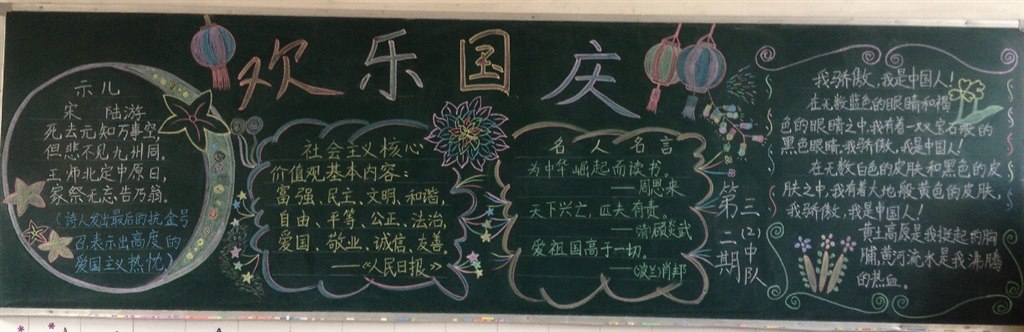 欢乐国庆
示儿
宋 陆游
死去元知万事空,
但悲不见九州同。
王师北定中原日,
家祭无忘告乃翁。
(诗人发出最后的抗金号
召表示出高度的
爱国主义热忱)
社会主义核心
价值观基本内容:
富强、民主、文明、和谐,
自由、平等、公正、法治,
爱国、敬业、诚信、友善。
——《人民日报》
名人名言
为中华崛起而读书。
——周恩来
天下兴亡,匹夫有责。
——(清)顾炎武
爱祖国高于一切。
——(波兰)肖邦
第二期
三(2)中队
我骄傲,我是中国人!
在无数蓝色的眼睛和褐
色的眼睛之中,我有着一双宝石般的
黑色眼睛,我骄傲,我是中国人!
在无数白色的皮肤和黑色的皮
肤之中,我有着大地般黄色的皮肤,
我骄傲,我是中国人!
黄土高原是我挺起的胸
脯,黄河流水是我沸腾
的热血。